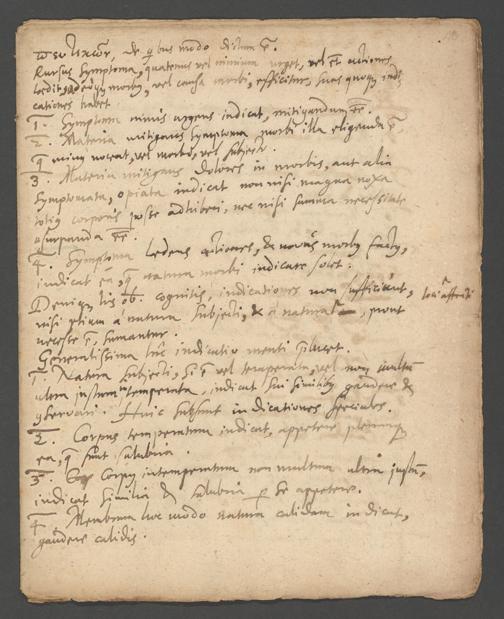 de quibus modo dictum est.
Rursus Symptoma, quatenus vel nimium urget, vel et actiones
laedit, vel causa morbi, efficitur, suas quoque indi
cationes habet
1. Symptoma nimis urgens indicat, mitigandum esse.
2. Materia mitigans symptoma morbi illa eligenda est,
quae minus noceat, vel morbo, vel subjecto.
3. Materia mitigans dolores in morbis, aut alia
symptomata, opiata indicat non nisi magna noxa
totius corporis posse adhiberi, nec nisi summa necessitate
usurpanda esse.
4. Symptoma laedens actiones, & novus morbus factus,
indicat ea, quae natura morbi indicare solet.
Denique, his ob. cognitis, indicationes non sufficiunt,
nisi etiam a natura subjecti, & a naturali, prout loci affecti
necesse est, sumantur.
Generalissima hic indicatio menti
1. Natura subjecti, si vel temperata, vel non multum
ultra justum intemperata, indicat sui similibus gaudere &
conservari. Huic subsunt indicationes speciales.
2. Corpus temperatum indicat, appetere
ea, quae sunt salubria.
3. Corpus intemperatum non multum ultra justum,
indicat similia & salubria per se appetere.
4. Membrum hoc modo natura calidum indicat,
gaudere calidis.